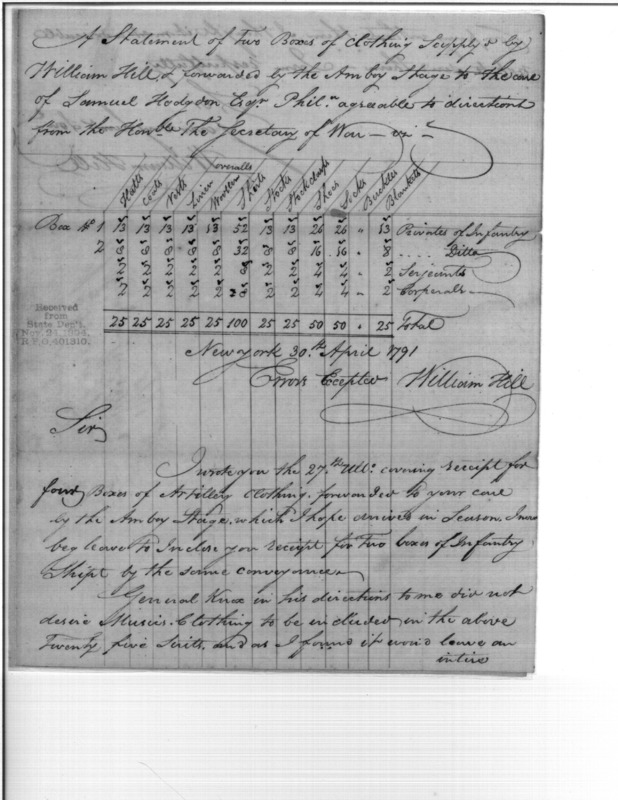 A Statement of Two Boxes of Clothing Supplyd by
William Hill, & forwarded by the Amboy Stage to the care
of Samuel Hodgdon Esqr. Phila. agreable to directions
from the Honble. The Secretary of War — viz.
Overalls
Hatts Coats Vests Linen Woolen Shirts Stocks Stockclasps Shoes Socks Buckles Blankets
Box No. 1 13 13 13 13 13 52 13 13 26 26 " 13 Privates of Infantry
2 8 8 8 8 8 32 8 8 16 16 " 8 .... Ditto
2 2 2 2 2 8 2 2 4 4 " 2 Serjeants
2 2 2 2 2 8 2 2 4 4 " 2 Corporals
25 25 25 25 25 100 25 25 50 50 " 25 Total
Received
from
State Dep't.
Nov. 21, 1904,
R.P.O. 401310.
New york 30th. April 1791
Errors Excepted William Hill
Sir
I wrote you the 27th Ulto. covering receipt for
four Boxes of Artillery Clothing. forwarded to your care
by the Amboy Stage, which I hope arrived in Season. I now
beg leave to Inclose you receipt for Two boxes of Infantry
Shipt by the same conveyance
General Knox in his directions to me did not
desire Musics. Clothing to be included in the above
Twenty five Suits. and as I found it would leave an
intire